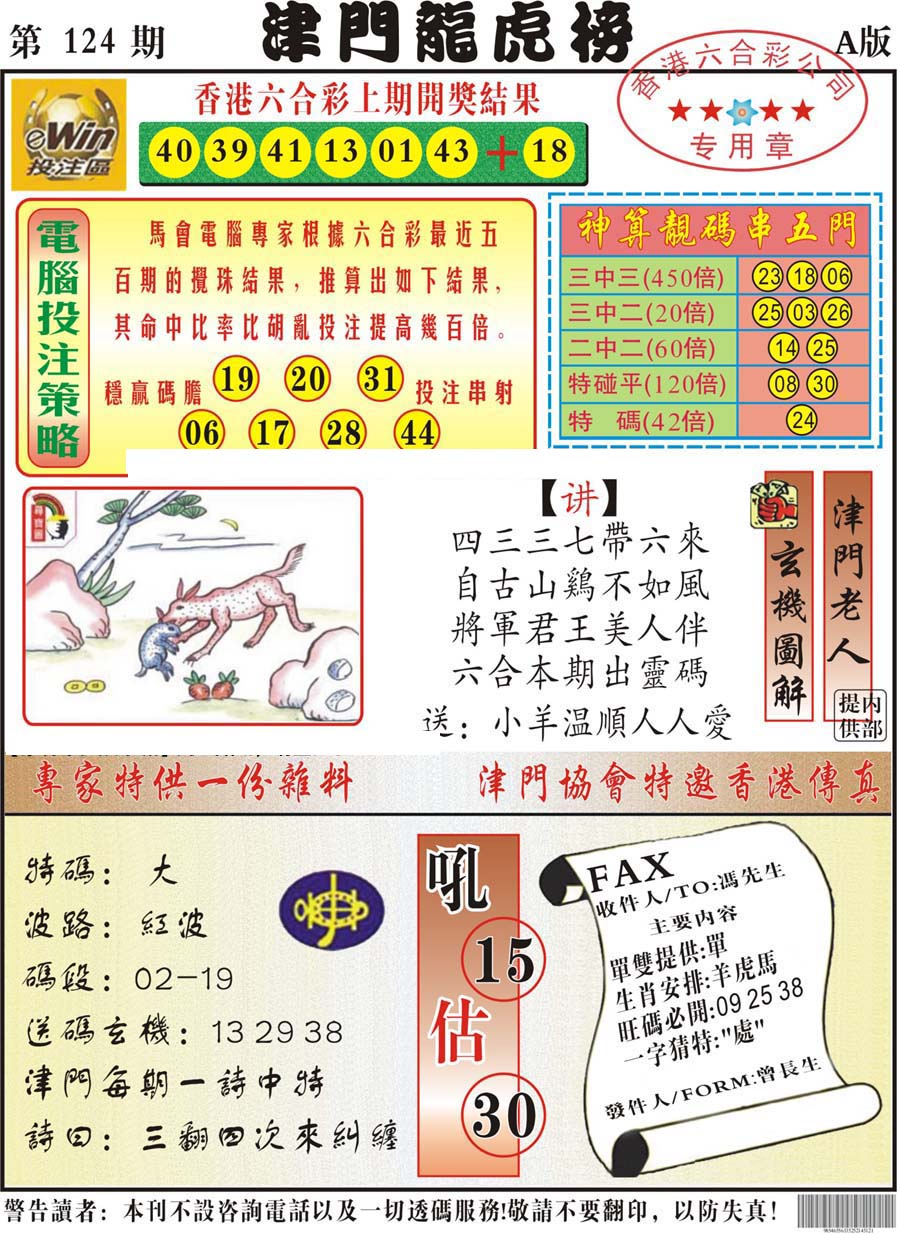 第 124 期
津門龍虎榜
A版
香港六合彩公司
专用章
eWin
投注區
香港六合彩上期開獎結果
40 39 41 13 01 43 + 18
電腦投注策略
馬會電腦專家根據六合彩最近五
百期的攪珠結果，推算出如下結果，
其命中比率比胡亂投注提高幾百倍。
穩贏碼膽 19 20 31 投注串射
06 17 28 44
神算靚碼串五門
三中三(450倍) 23 18 06
三中二(20倍) 25 03 26
二中二(60倍) 14 25
特碰平(120倍) 08 30
特 碼(42倍) 24
尋寶圖
【讲】
四三三七帶六來
自古山鷄不如風
將軍君王美人伴
六合本期出靈碼
送：小羊温順人人愛
玄機圖解
津門老人
内部
提供
專家特供一份雜料
津門協會特邀香港傳真
特碼：大
波路：紅波
碼段：02-19
送碼玄機：13 29 38
津門每期一詩中特
詩曰：三翻四次來糾纏
吼
15
估
30
FAX
收件人/TO:馮先生
主要内容
單雙提供:單
生肖安排:羊虎馬
旺碼必開:09 25 38
一字猜特:"處"
發件人/FORM:曾長生
警告讀者：本刊不設咨詢電話以及一切透碼服務!敬請不要翻印，以防失真！